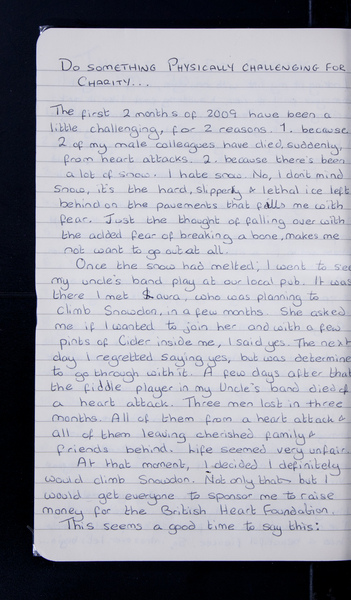 DO SOMETHING PHYSICALLY CHALLENGING FOR
CHARITY...
The first 2 months of 2009 have been a
little challenging, for 2 reasons. 1. because
2 of my male colleagues have died, suddenly,
from heart attacks. 2. because there's been
a lot of snow. I hate snow. No, I don't mind
snow, it's the hard, slippery & lethal ice left
behind on the pavements that fills me with
fear. Just the thought of falling over with
the added fear of breaking a bone, makes me
not want to go out at all.
Once the snow had melted, I went to see
my uncle's band play at our local pub. It was
there I met Laura, who was planning to
climb Snowdon, in a few months. She asked
me if I wanted to join her and with a few
pints of Cider inside me, I said yes. The next
day I regretted saying yes, but was determine
to go through with it. A few days after that
the fiddle player in my Uncle's band died of
a heart attack. Three men lost in three
months. All of them from a heart attack &
all of them leaving cherished family &
friends behind. Life seemed very unfair.
At that moment, I decided I definitely
would climb Snowdon. Not only that but I
would get everyone to sponsor me to raise
money for the British Heart Foundation.
This seems a good time to say this: